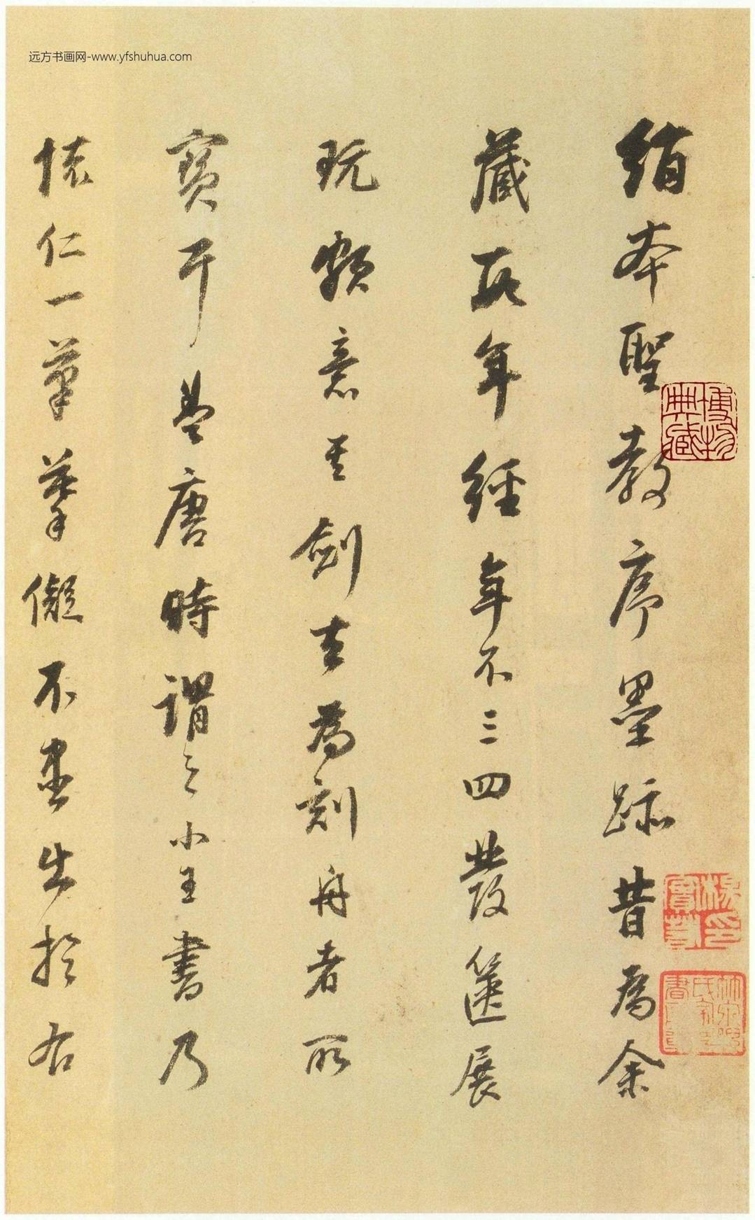 远方书画网-www.yfshuhua.com
绢本聖教序墨跡昔為余
藏数年經年不三四發篋展
玩頗意其劍去為刻舟者所
寶耳盖唐時謂之小王書乃
懐仁一筆摹儗不盡出於右
博物典藏